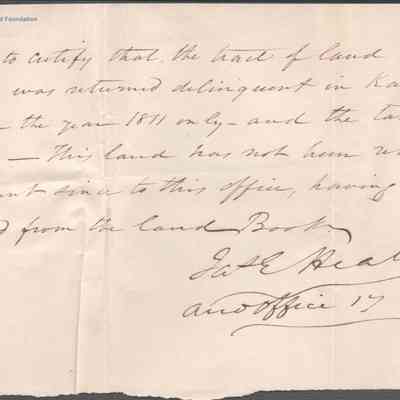 d Foundation
to certify that the tract of land
was returned delinquent in Ka
the year 1871 only - and the ta
- This land has not been re
nt since to this office, having
d from the Land Book
Jas E Heal
Aud office 17